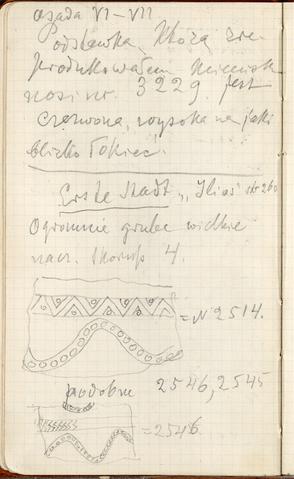 osada VI–VII
podstawka, którą zre-
produkowałem
nosi nr. 3229. jest
czerwona, wysoka na jaki
blizko łokieć.
Erste Stadt, „Ilios" str 260
Ogromnie grube wielkie
nacz. skorup 4.
= № 2514.
podobne 2546, 2545
= 2546